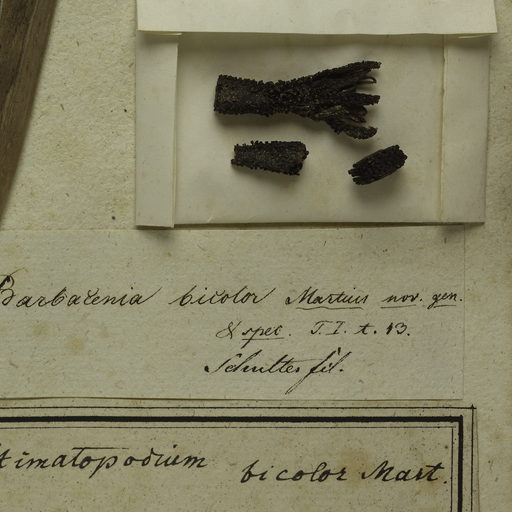 Barbacenia bicolor Martius nov. gen.
& spec. T. I. t. 13.
Schultes fil.
timatopodium bicolor Mart.